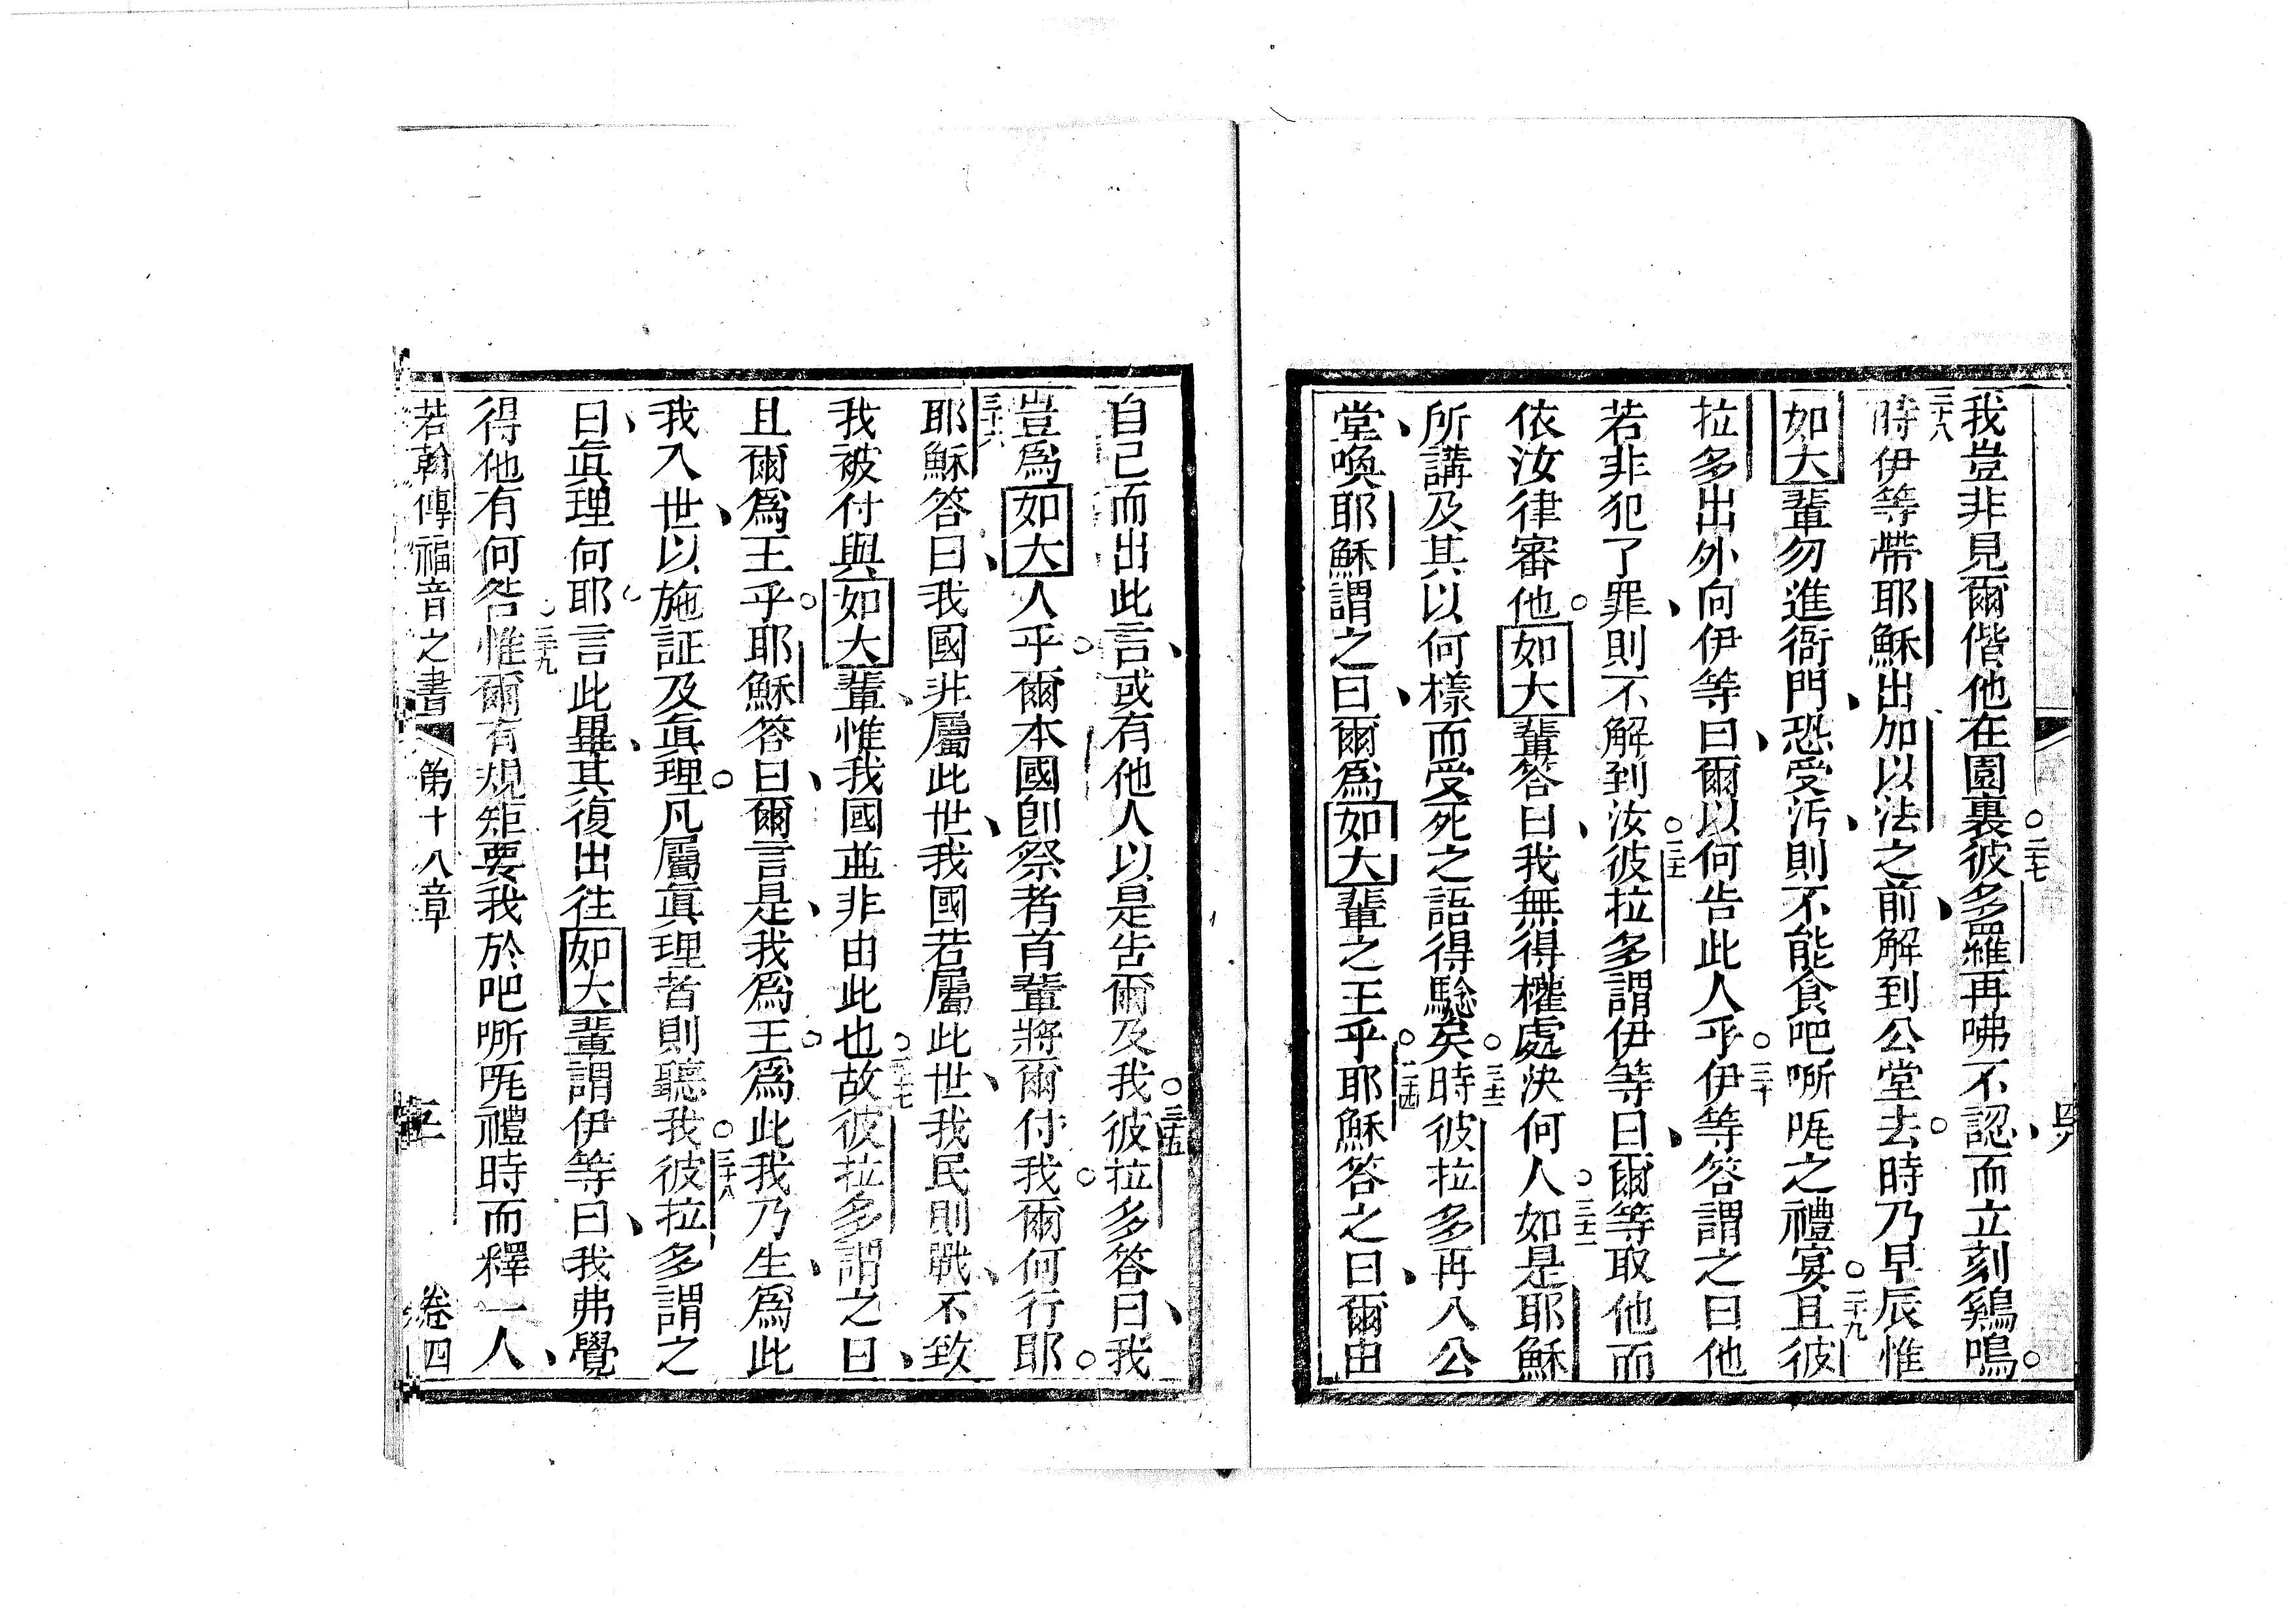 我豈非見爾偕他在園裏。二十七彼多羅再咈不認、而立刻鷄鳴。
二十八時伊等帶耶穌出加以法之前、解到公堂去。時乃早辰惟
如大輩勿進衙門、恐受汚、則不能食吧𠵽𠹌之禮宴。二十九且彼
拉多出外向伊等曰、爾以何告此人乎。三十伊等答謂之曰他
若非犯了罪、則不解到汝。三十一彼拉多謂伊等曰、爾等取他而
依汝律審他。如大輩答曰、我無得權處決何人。三十二如是耶穌
所講及其以何樣而受死之語得驗矣。三十三時彼拉多再入公
堂、喚耶穌謂之曰、爾爲如大輩之王乎。三十四耶穌答之曰、爾由
自己而出此言、或有他人以是告爾及我。三十五彼拉多答曰、我
豈爲如大人乎。爾本國卽祭者首輩將爾付我。爾何行耶。
三十六耶穌答曰、我國非屬此世、我國若屬此世、我民則戰、不致
我被付與如大輩、惟我國並非由此也。三十七故彼拉多謂之曰、
且爾爲王乎。耶穌答曰、爾言是、我爲王。爲此我乃生、爲此
我入世、以施証及眞理。凡屬眞理者則聽我。三十八彼拉多謂之
曰、眞理何耶。言此畢、其復出往如大輩謂伊等曰、我弗覺
得他有何咎。三十九惟爾有規矩要我於吧𠵽𠹌禮時而釋一人、
若翰傳福音之書 第十八章 卷四